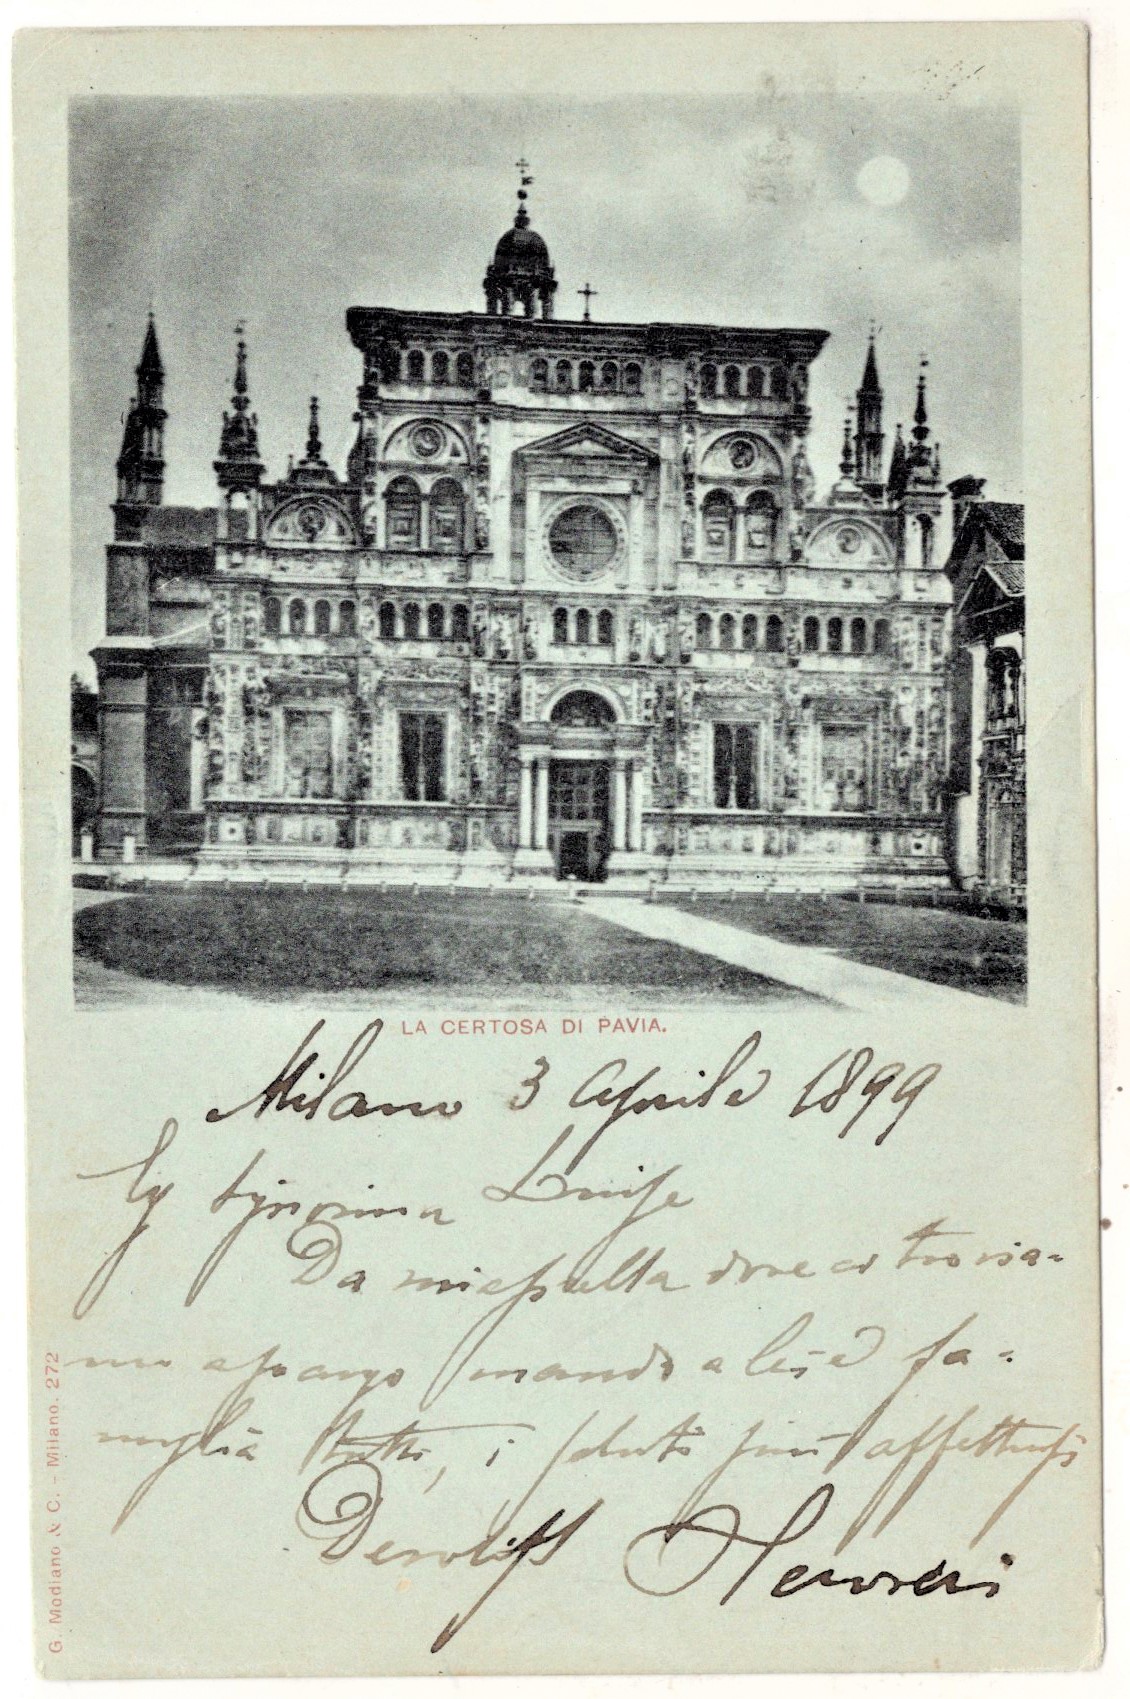 LA CERTOSA DI PAVIA.
Milano 3 Aprile 1899
Eg Signorina Luise
Da
mando a lei e fa-
miglia tutti, i saluti più affettuosi
Devotiss
G. Modiano & C. - Milano. 272